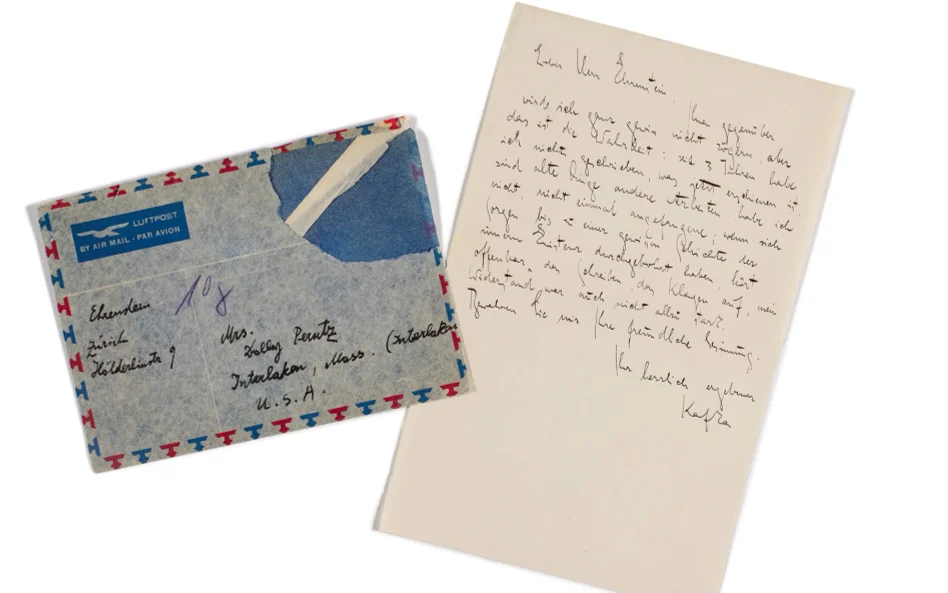 LUFTPOST
BY AIR MAIL - PAR AVION
Ehrenstein
Zürich
Hölderlinstr 9
10 g
Mrs.
Dolly Perutz
Interlaken, Mass. (Interlaken
U.S.A.
Lieber Herr Ehrenstein, Ihnen gegenüber
würde ich ganz gewiss nicht zögern, aber
das ist die Wahrheit: seit 3 Jahren habe
ich nichts geschrieben, was jetzt erschienen ist
sind alte Dinge, andere Arbeiten habe ich
nicht, nicht einmal angefangene; wenn sich
Sorgen bis zu einer gewissen Schichte der
innern Existenz durchgebohrt haben, hört
offenbar das Schreiben, das Klagen auf, mein
Widerstand war auch nicht allzu stark.
Bewahren Sie mir Ihre freundliche Gesinnung.
Ihr herzlich ergebener
Kafka